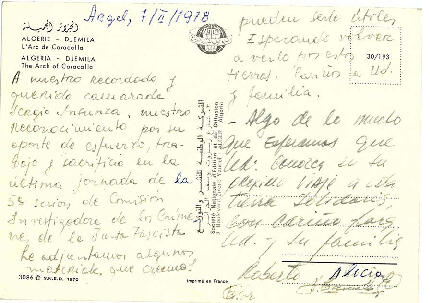 Argel, 7/II/1978
الجزائر - جميلة
ALGERIE - DJEMILA
L'Arc de Caracalla
ALGERIA - DJEMILA
The Arch of Caracalla
30/193
A nuestro recordado y
querido camarada
Sergio Insunza, nuestro
reconocimiento por su
aporte de esfuerzo, tra-
bajo y sacrificio en la
última jornada de la
5ª sesión de Comisión
Investigadora de los Críme-
nes de la Junta Fascista
Le adjuntamos algunos
materiales que creemos
3086 © S.N.E.D. 1970
Imprimé en France
pueden serle útiles,
Esperando volver
a verlo por estas
tierras. Cariños a Ud.
y familia.
- Algo de lo mucho
que esperamos que
Ud. conozca en su
próximo viaje a esta
tierra solidaria
Con cariño para
Ud. y su familia
Roberto Alicia